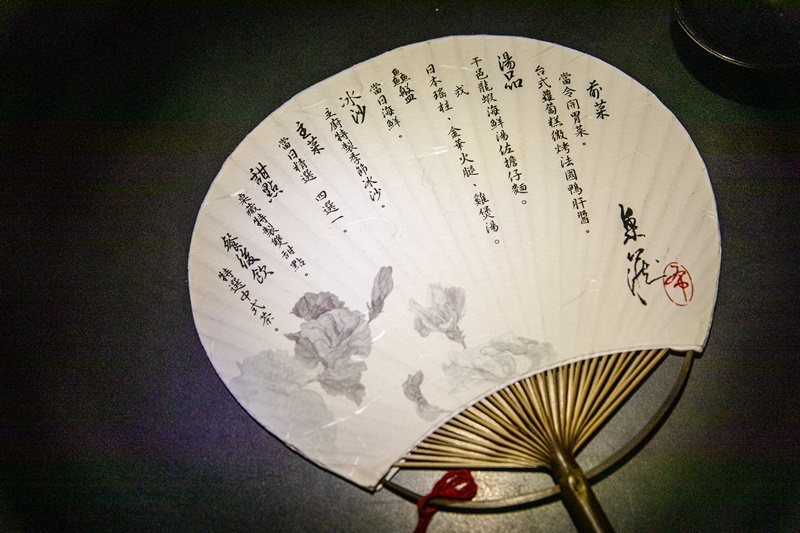 前菜
當令開胃菜。
台式蘿蔔糕微烤法國鴨肝醬。
湯品
干邑龍蝦海鮮湯佐擔仔麵。
或
日本瑤柱、金華火腿、雞煲湯。
鱻盤
當日海鮮。
冰沙
主廚特製季節冰沙。
主菜
當日精選 四選一。
甜點
巢㰖特製雙甜點。
餐後飲
特選中式茶。